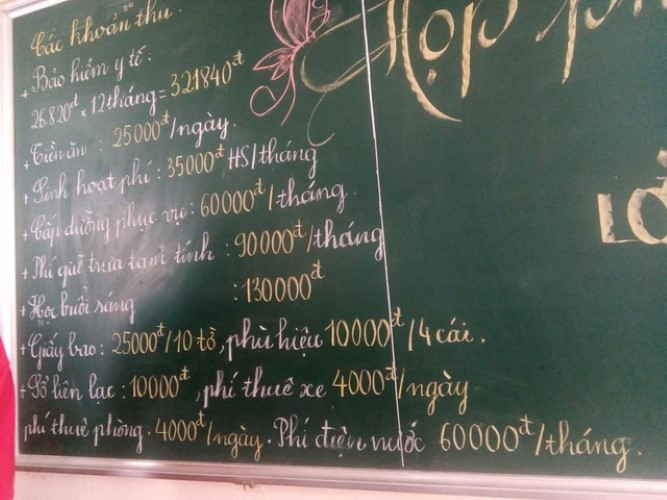 Các khoản thu.
+ Bảo hiểm y tế:
26.820đ x 12tháng = 321840đ
+ Tiền ăn : 25000đ/ngày.
+ Sinh hoạt phí : 35000đ HS/tháng
+ Cấp dưỡng phục vụ: 60000đ/tháng.
+ Phí giữ trưa tạm tính : 90000đ/tháng
+ Học buổi sáng : 130000đ
+ Giấy bao : 25000đ/10 tờ, phù hiệu 10000đ/4 cái.
+ Sổ liên lạc : 10000đ, phí thuê xe 4000đ/ngày
phí thuê phòng. 4000đ/ngày. Phí điện nước 60000đ/tháng.
Họp